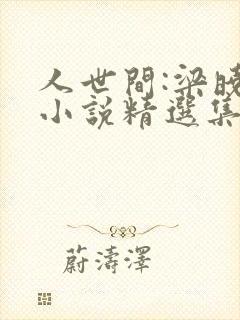 人世間:梁曉
小說精選集
蔚濤澤